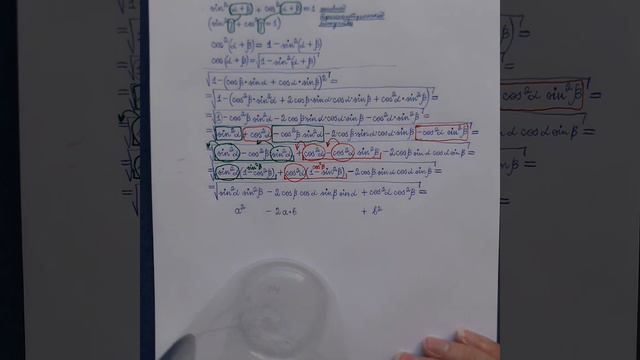 sin²(α+β) + cos²(α+β) = 1
(sin²β + cos²β = 1)
cos²(α+β) = 1 − sin²(α+β)
cos(α+β) = √(1 − sin²(α+β))
√(1 − (cosβ·sinα + cosα·sinβ)²) =
= √(1 − (cos²β·sin²α + 2cosβ·sinα·cosα·sinβ + cos²α·sin²β)) =
= √(1 − cos²β sin²α − 2cosβ·sinα·cosα·sinβ − cos²α·sin²β) =
= √(sin²α + cos²α − cos²β sin²α − 2cosβ sinα cosα sinβ − cos²α sin²β) =
= √(sin²α − cos²β sin²α + cos²α − cos²α sin²β − 2cosβ sinα cosα sinβ) =
sin²β cos²β
= √(sin²α(1 − cos²β) + cos²α(1 − sin²β) − 2cosβ sinα cosα sinβ) =
= √(sin²α sin²β − 2cosβ cosα sinβ sinα + cos²α cos²β) =
a² − 2a·b + b²